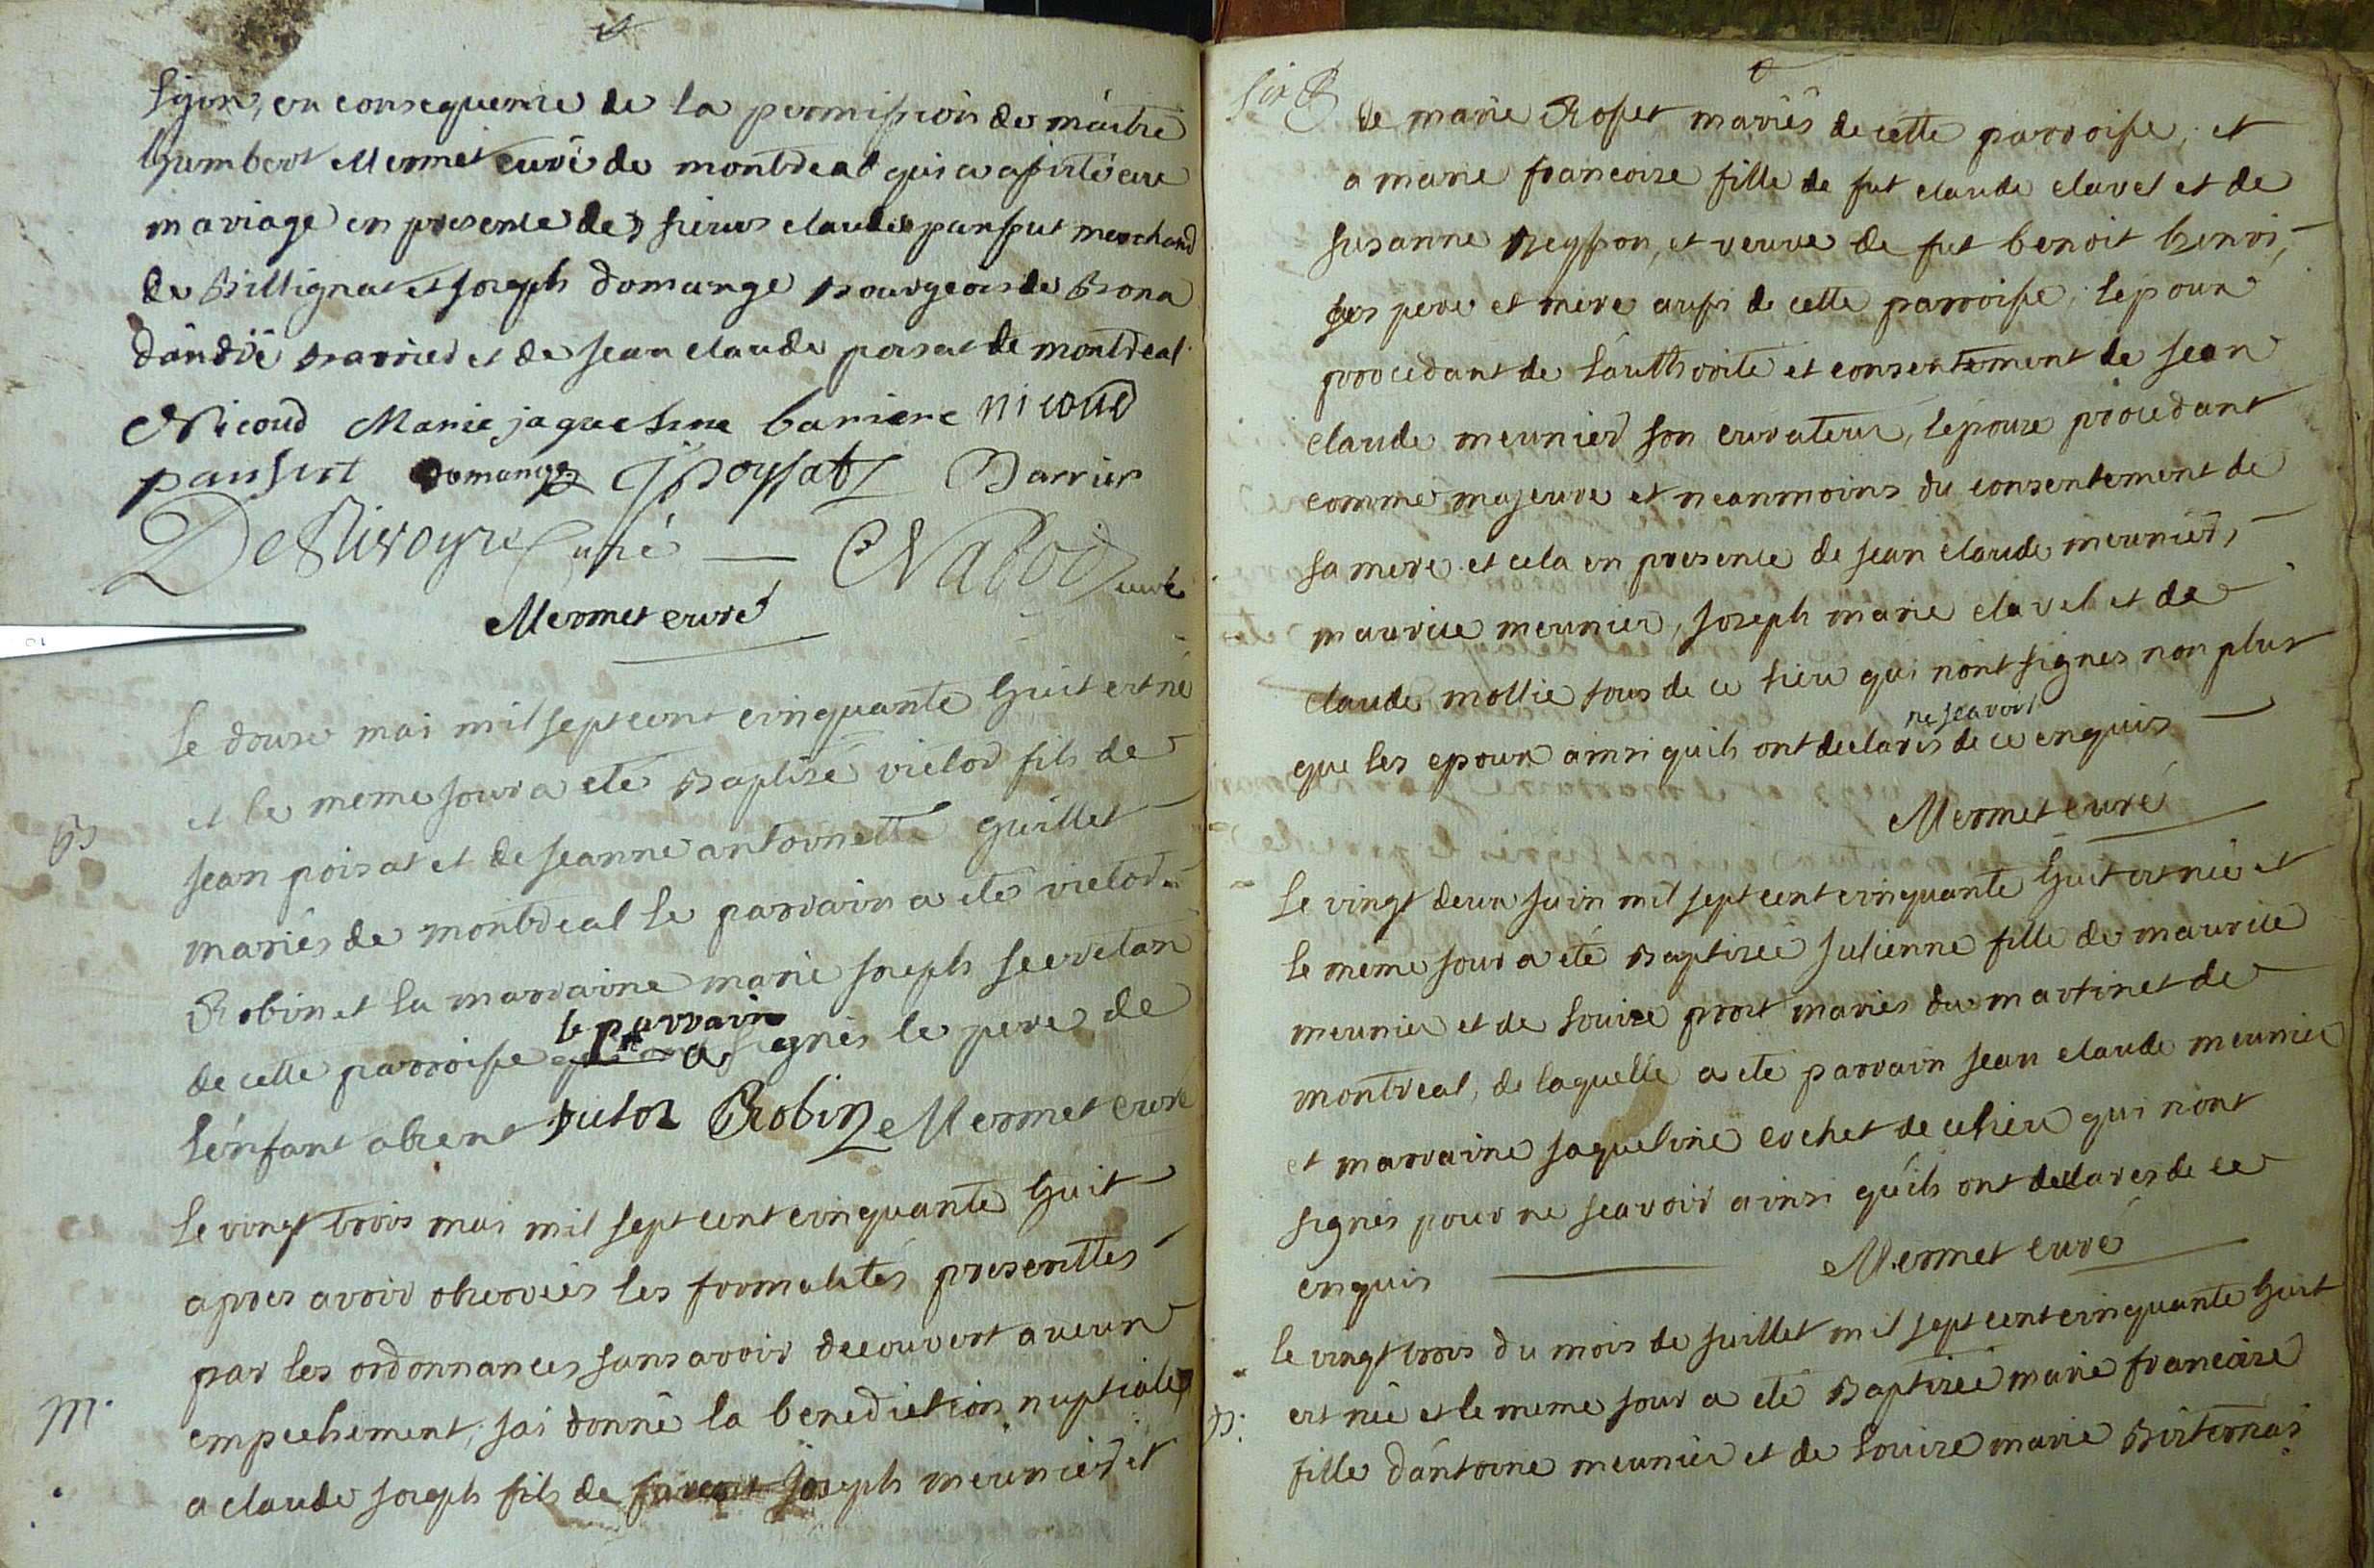 Lyon, en consequence de la permission de maitre
humbert Mermet curé de montreal qui a assisté au
mariage en presence des sieurs claude pansut merchand
de Billignat et joseph domange bourgeois de Bona
dandré barrier et de jean claude poisat de montreal
Nicoud Marie jaqueline barriere nicoud
pansut Domange JJ Poysat Barrier
De Rivoyre Curé curé
Mermet curé
le douze mai mil sept cent cinquante huit est né
et le meme jour a eté Baptisé victor fils de
B
jean poisat et de jeanne antoinette guillet
mariés de montreal le parrain a eté victor
Robin et la marraine marie joseph secretan
le parrain
de cette parroisse a signés le pere de
l'enfant absent victor Robin Mermet curé
le vingt trois mai mil sept cent cinquante huit
apres avoir observées les formalités prescrittes
par les ordonnances sans avoir decouvert aucun
m.
empechement, j'ai donné la benediction nuptiale
a claude joseph fils de joseph meunier et
de marie Rosset mariés de cette parroisse, et
a marie francoise fille de fut claude clavel et de
susanne Reysson, et veuve de fut benoit henri,
ses pere et mere aussi de cette parroisse, lepoux
procedant de l'authorité et consentement de jean
claude meunier son curateur, lepouse procedant
comme majeure et neanmoins du consentement de
sa mere et cela en presence de jean claude meunier,
maurice meunier, joseph marie clavel et de
claude mollie tous de ce lieu qui n'ont signés non plus
ne scavoir
que les epoux ainsi quils ont declarés de ce enquis
Mermet curé
le vingt deux juin mil sept cent cinquante huit est née et
le meme jour a été Baptisée julienne fille de maurice
meunier et de louise prost mariés du martinet de
montreal, de laquelle a eté parrain jean claude meunier
et marraine jaqueline cochet de ce lieu qui n'ont
signés pour ne scavoir ainsi qu'ils ont declarés de ce
enquis Mermet curé
le vingt trois du mois de juillet mil sept cent cinquante huit
B.
est née et le meme jour a eté Baptisée marie francoise
fille d'antoine meunier et de louise marie